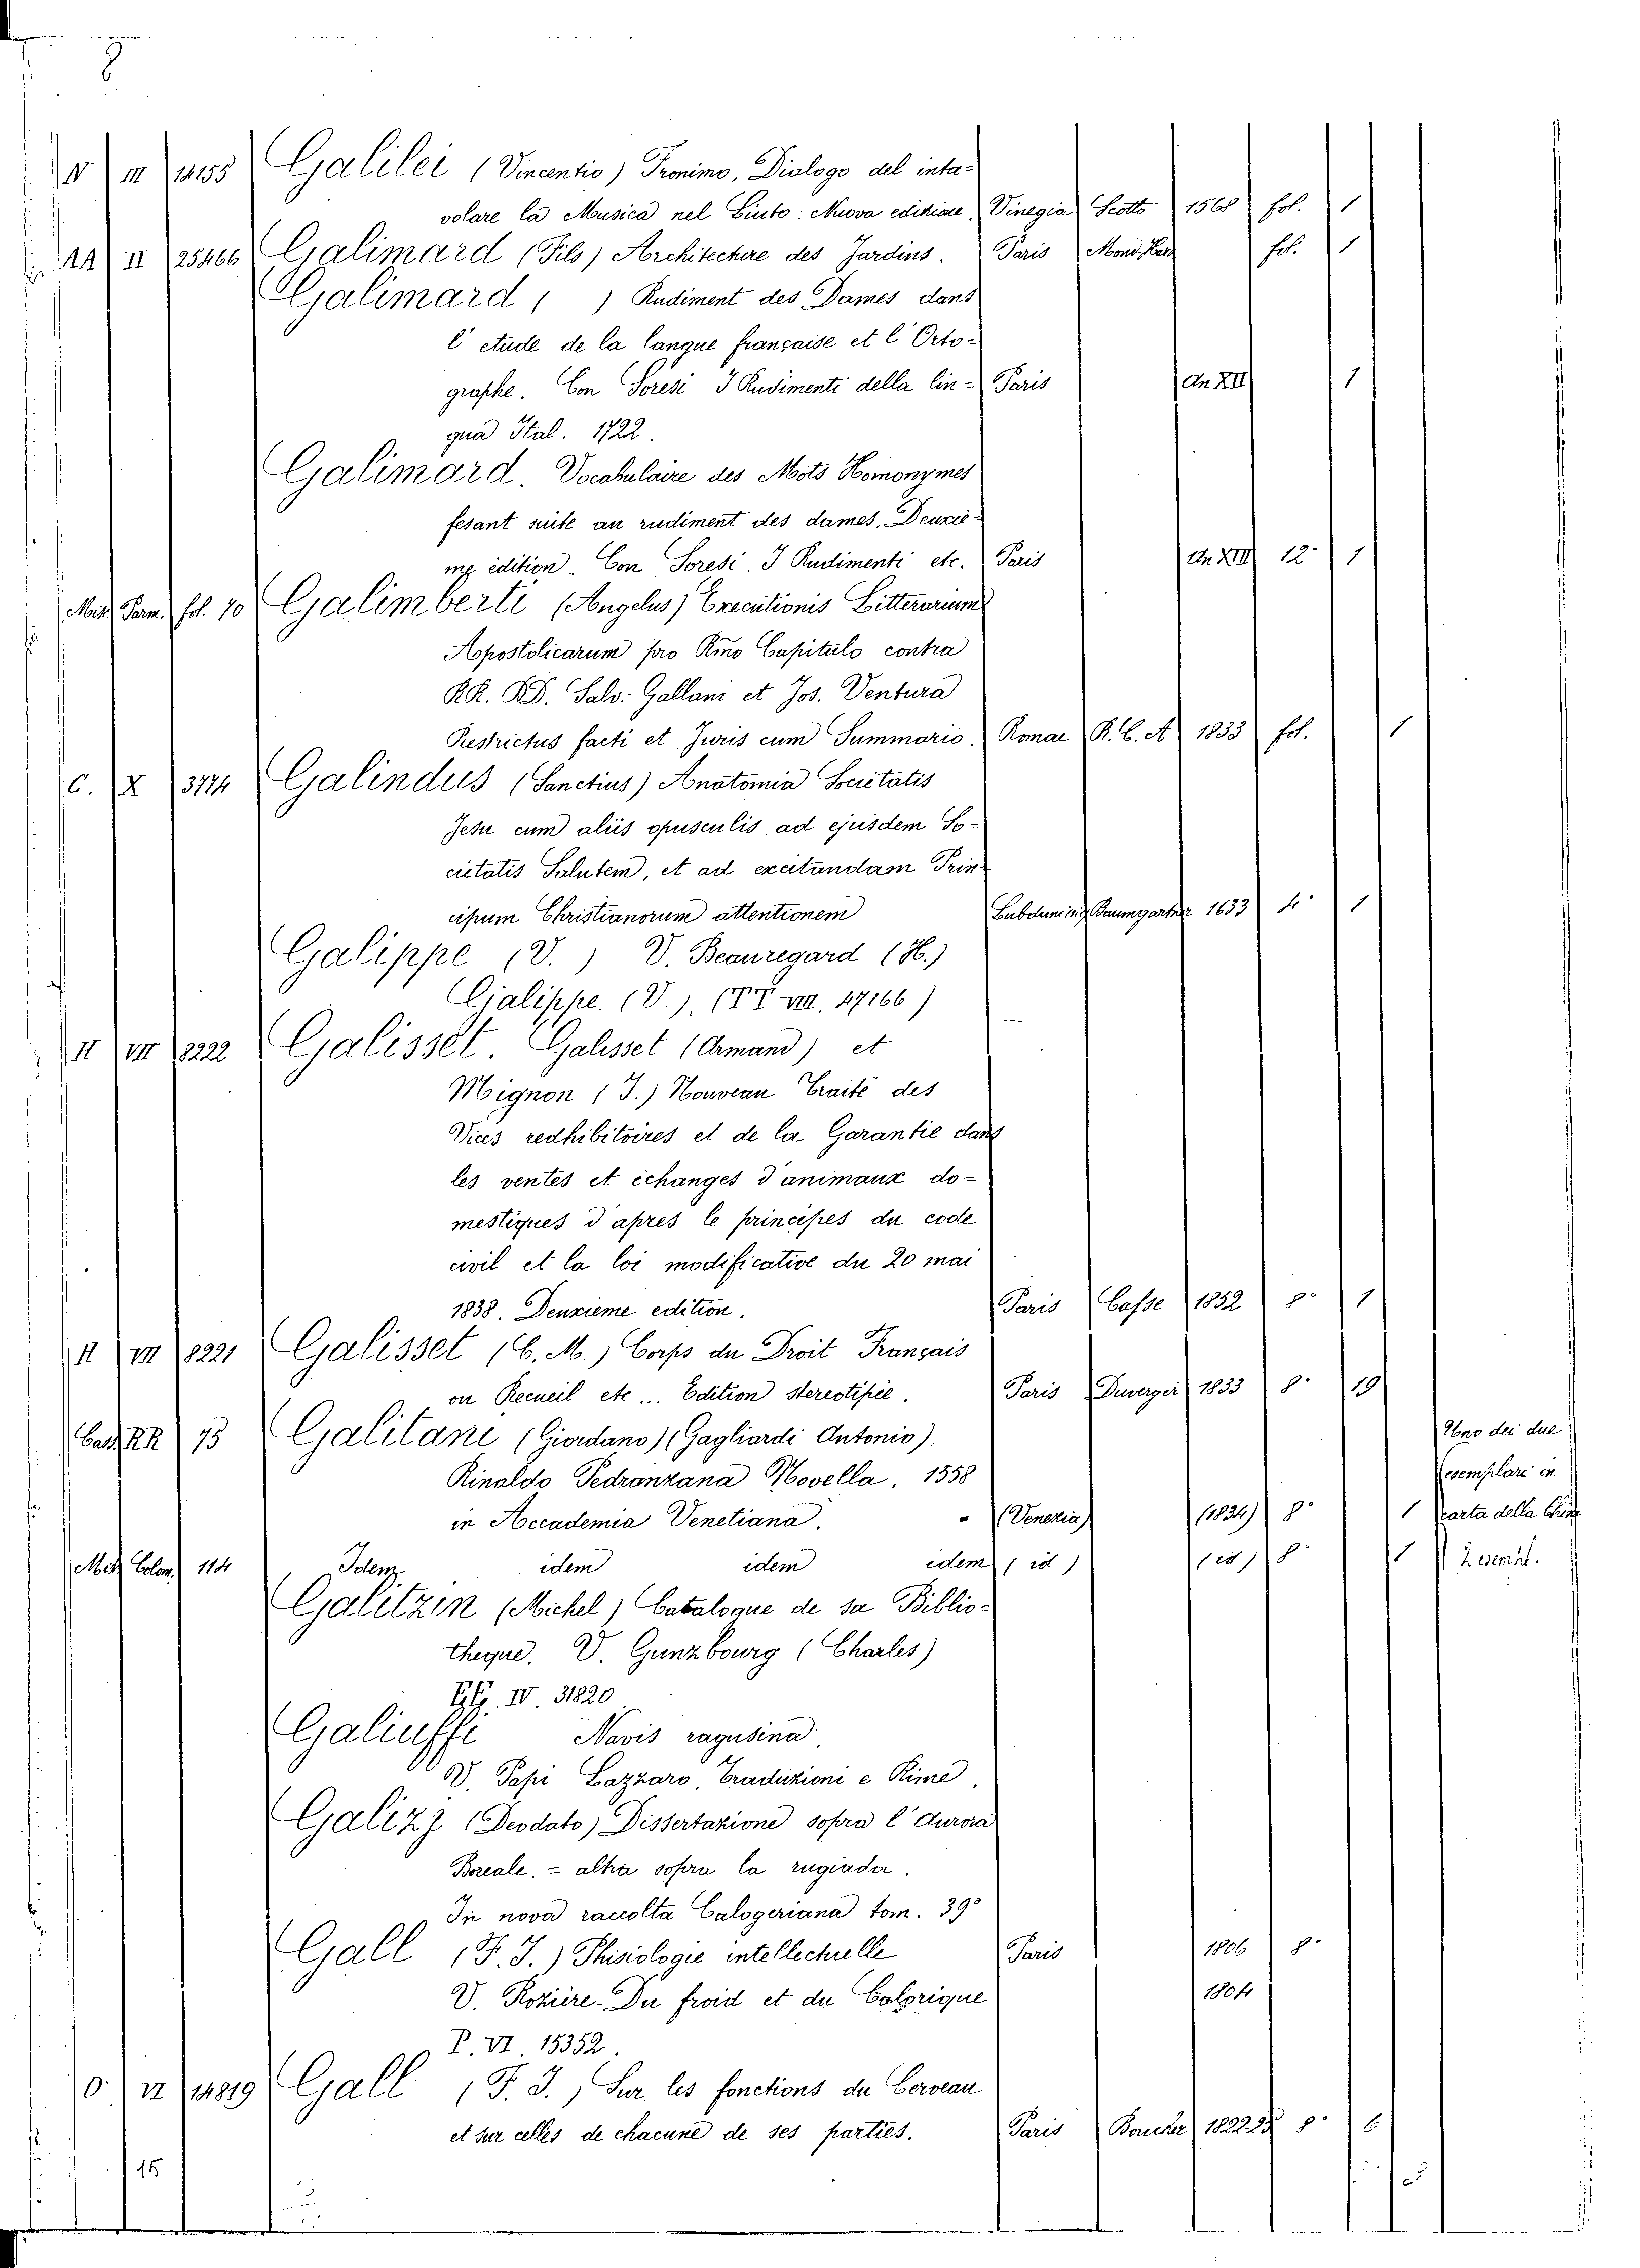 8
V III 14155 Galilei (Vincentio) Fronimo, Dialogo del inta-
volare la Musica nel Liuto. Nuova edizione, Vinegia Scotto 1568 fol. 1
AA II 25466 Galimard (Fils) Architecture des Jardins. Paris fol. 1
Galimard ( ) Rudiment des Dames dans
l'etude de la langue française et l'Orto-
graphe. Con Soresi I Rudimenti della lin- Paris An XII 1
gua Ital. 1722.
Galimard. Vocabulaire des Mots Homonymes
fesant suite au rudiment des dames. Deuxiè-
me édition. Con Soresi. I Rudimenti etc. Paris An XIII 12° 1
Misc. Parm. fol. 70 Galimberti (Angelus) Executionis Litterarum
Apostolicarum pro Rmo Capitulo contra
RR. DD. Salv. Gallani et Jos. Ventura
Restrictus facti et Juris cum Summario. Romae R. C. A 1833 fol. 1
C. X 3774 Galindus (Sanctius) Anatomia Societatis
Jesu cum aliis opusculis ad ejusdem So-
cietatis Salutem, et ad excitandam Prin-
cipum Christianorum attentionem Baumgartner 1633 4° 1
Galippe (V.) V. Beauregard (H.)
Galippe. (V.), (TT VIII, 47166)
II VII 8222 Galisset. Galisset (Armand) et
Mignon (J.) Nouveau Traité des
Vices redhibitoires et de la Garantie dans
les ventes et échanges d'animaux do-
mestiques d'apres le principes du code
civil et la loi modificative du 20 mai
1838. Deuxieme edition. Paris Casse 1852 8° 1
II VII 8221 Galisset (C. M.) Corps du Droit Français
ou Recueil etc... Edition stereotipée. Paris Duverger 1833 8° 19
Cas. RR 75 Galitani (Giordano) (Gagliardi Antonio) Uno dei due
Rinaldo Pedranzana Novella. 1558 esemplari in
in Accademia Venetiana. - (Venezia) (1834) 8° 1 carta della China
Misc. Colom. 114 Idem idem idem idem (id) (id) 8° 1 2 esempl.
Galitzin (Michel) Catalogue de sa Biblio-
theque. V. Gunzbourg (Charles)
GG. IV. 31820
Galiuffi Navis ragusina.
V. Papi Lazzaro, Traduzioni e Rime.
Galizj (Deodato) Dissertazione sopra l'Aurora
Boreale. = altra sopra la rugiada.
In nova raccolta Calogeriana tom. 39°
Gall (F. J.) Phisiologie intellectuelle Paris 1806 8°
V. Rozière. Du froid et du Calorique 1804
P. VI. 15352.
O. VI 14819 Gall (F. J.) Sur les fonctions du Cerveau
et sur celles de chacune de ses parties. Paris Boucher 1822 25 8° 6
15